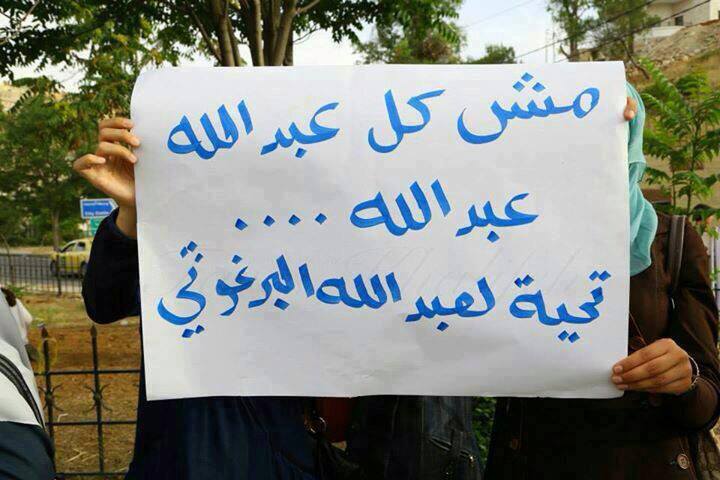 مش كل عبد الله
عبد الله ....
تحية لعبد الله البرغوثي